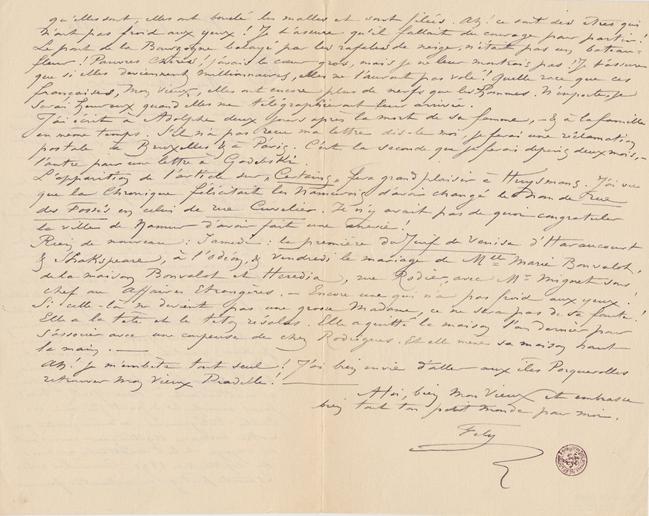 qu'elles sont, elles ont bouclé les malles et sont filées. Ah! ce sont des êtres qui
n'ont pas froid aux yeux! Je t'assure qu'il fallait du courage pour partir!
Le pont de la Bourgogne balayé par les rafales de neige, n'était pas un bateau-
fleur! Pauvres chères! j'avais le cœur gros, mais je ne leur montrais pas! Je t'assure
que si elles deviennent millionnaires, elles ne l'auront pas volé! Quelle race que ces
françaises, mon vieux, elles ont encore plus de nerfs que les hommes. N'importe, je
serai heureux quand elles me télégraphieront leur arrivée.
J'ai écrit à Adolphe deux jours après la mort de sa femme, – & à la famille
en même temps. S'il n'a pas reçu ma lettre dis-le moi, je ferai une réclamation
postale à Bruxelles & à Paris. C'est la seconde que je ferai depuis deux mois, –
l'autre pour une lettre à Godebski.
L'apparition de l'article sur „Certains„ fera grand plaisir à Huysmans. J'ai vu
que la Chronique félicitait les Namurois d'avoir changé le nom de Rue
des Fossés en celui de rue Cuvelier. Je n'y avait pas de quoi congratuler
la ville de Namur d'avoir fait une ânerie!
Rien de nouveau: Samedi: la première du Juif de Venise d'Haraucourt
& Shakspeare, à l'Odéon, & vendredi le mariage de Mlle Marie Bonvalot,
de la maison Bonvalot et Heredia, rue Rodier avec Mr Mignet sous
chef au Affaires Etrangères. – Encore une qui n'a pas froid aux yeux!
Si celle-là ne devient pas une grosse Madame, ce ne sera pas de sa faute!
Elle a la tête et le téton résolus. Elle a quitté la maison l'an dernier pour
s'associer avec une coupeuse de chez Rodrigues. Et elle mène sa maison haut
la main. —
Ah! je m'embête tout seul! J'ai bien envie d'aller aux îles Porquerolles
retrouver mon vieux Pradelle! —
A toi, bien mon vieux et embrasse
bien tout ton petit monde pour moi.
Fély